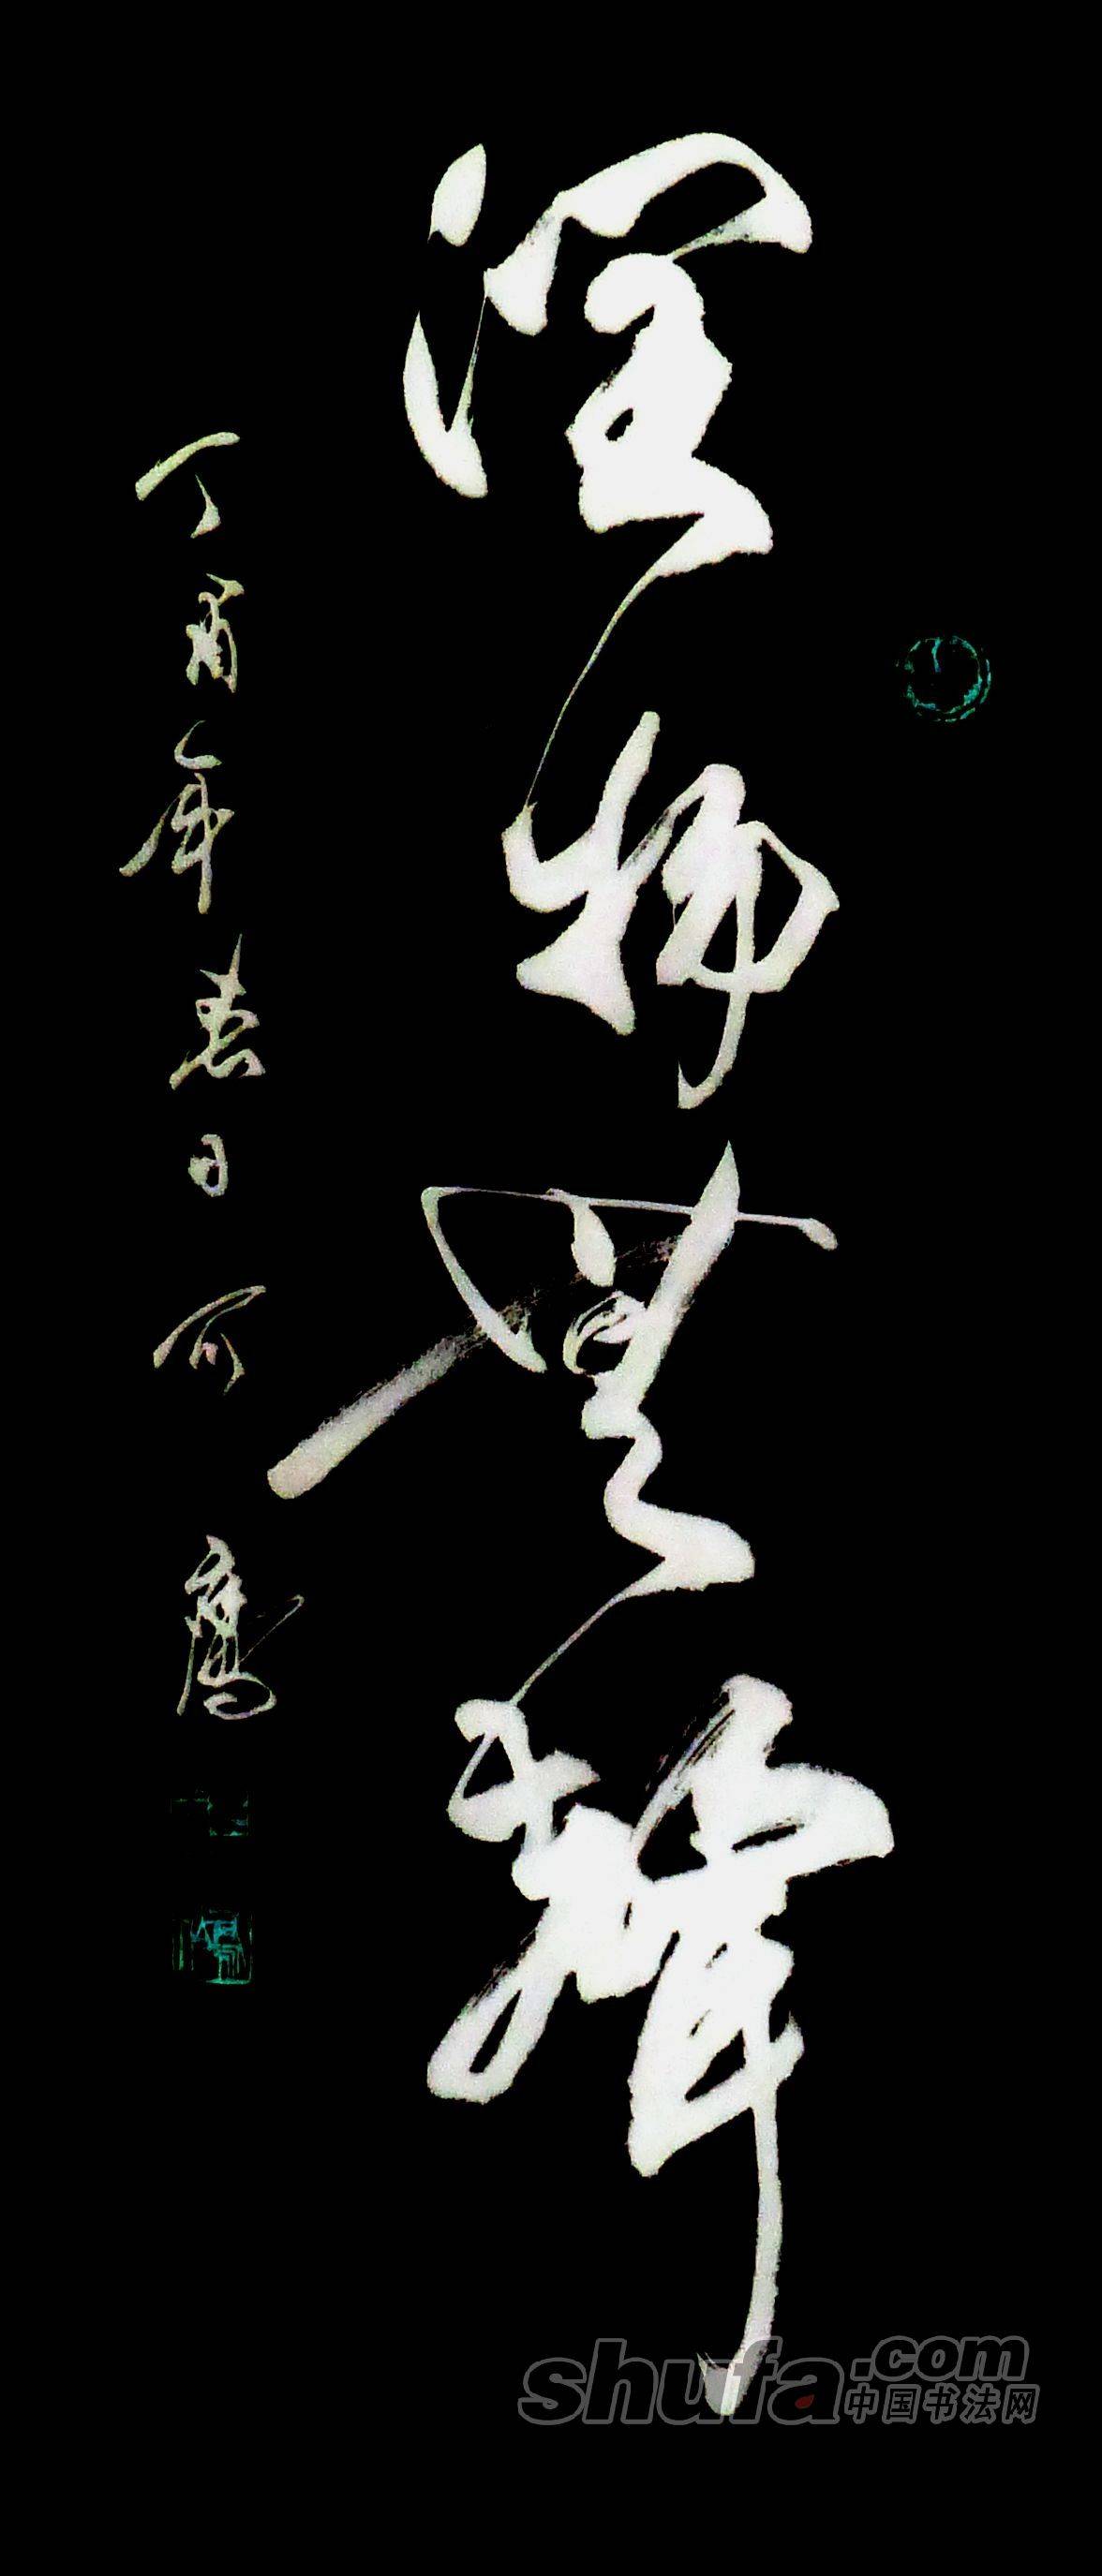 润物无声
丁酉年春日 何鹰
shufa.com
中国书法网